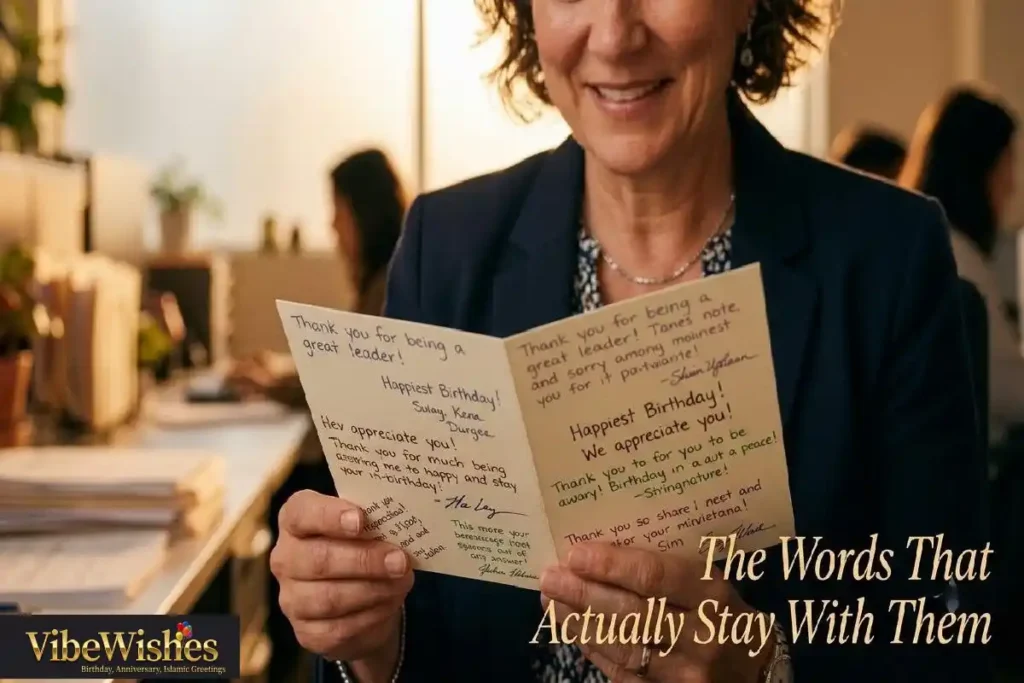 Thank you for being a
great leader!
Happiest Birthday!
Sulay, Kena
Durgee
Hev appreciate you!
Thank you for much being
me to happy and stay
your in-birthday!
- Ha Ley
This more your
out of
any answer!
Thank you for being a
great leader! Tanes note,
and sorry among molinest
you for it
Happiest Birthday!
We appreciate you!
Thank you to for you to be
away! Birthday in a aut a peace!
- Stringnature!
Thank you so share i neet and
for your minvietana!
Sim
The Words That
Actually Stay With Them
VibeWishes
Birthday, Anniversary, Islamic Greetings